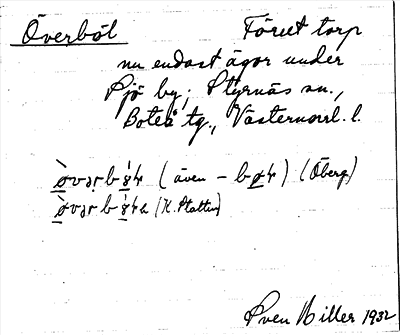 Överböl Förut torp
nu endast ägor under
Sjö by, Styrnäs sn.,
Boteå tg., Västernorrl. l.
(även – ) (Öberg)
(K. Plattin)
Sven Hiller 1932